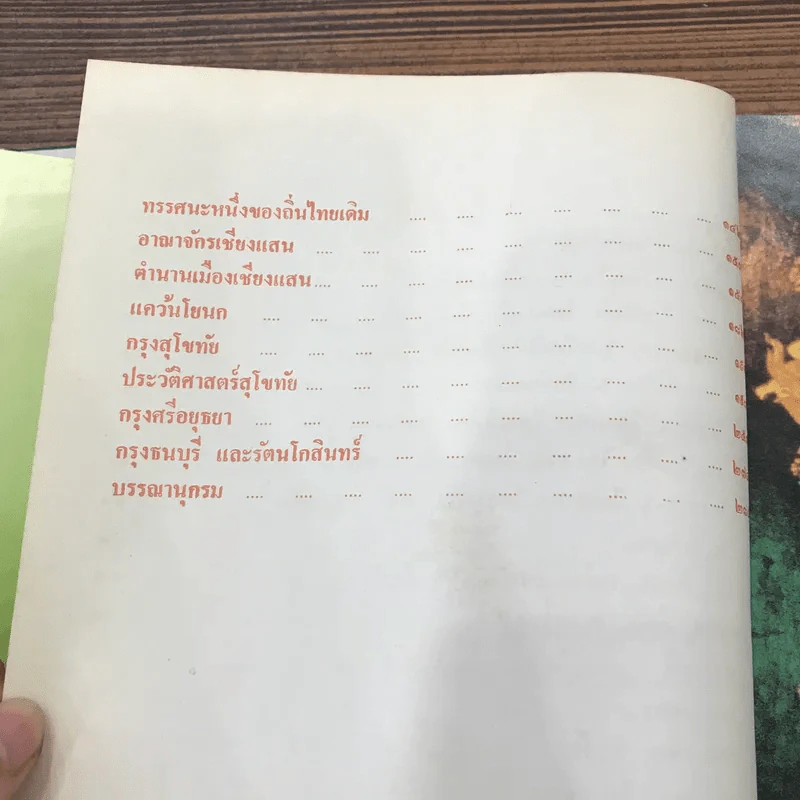 ทรรศนะหนึ่งของถิ่นไทยเดิม .... .... .... .... .... .... ....
อาณาจักรเชียงแสน .... .... .... .... .... .... .... .... ....
ตำนานเมืองเชียงแสน .... .... .... .... .... .... .... .... ....
แคว้นโยนก .... .... .... .... .... .... .... .... .... ....
กรุงสุโขทัย .... .... .... .... .... .... .... .... .... ....
ประวัติศาสตร์สุโขทัย .... .... .... .... .... .... .... .... ....
กรุงศรีอยุธยา .... .... .... .... .... .... .... .... .... ....
กรุงธนบุรี และรัตนโกสินทร์ .... .... .... .... .... .... ....
บรรณานุกรม .... .... .... .... .... .... .... .... .... ....